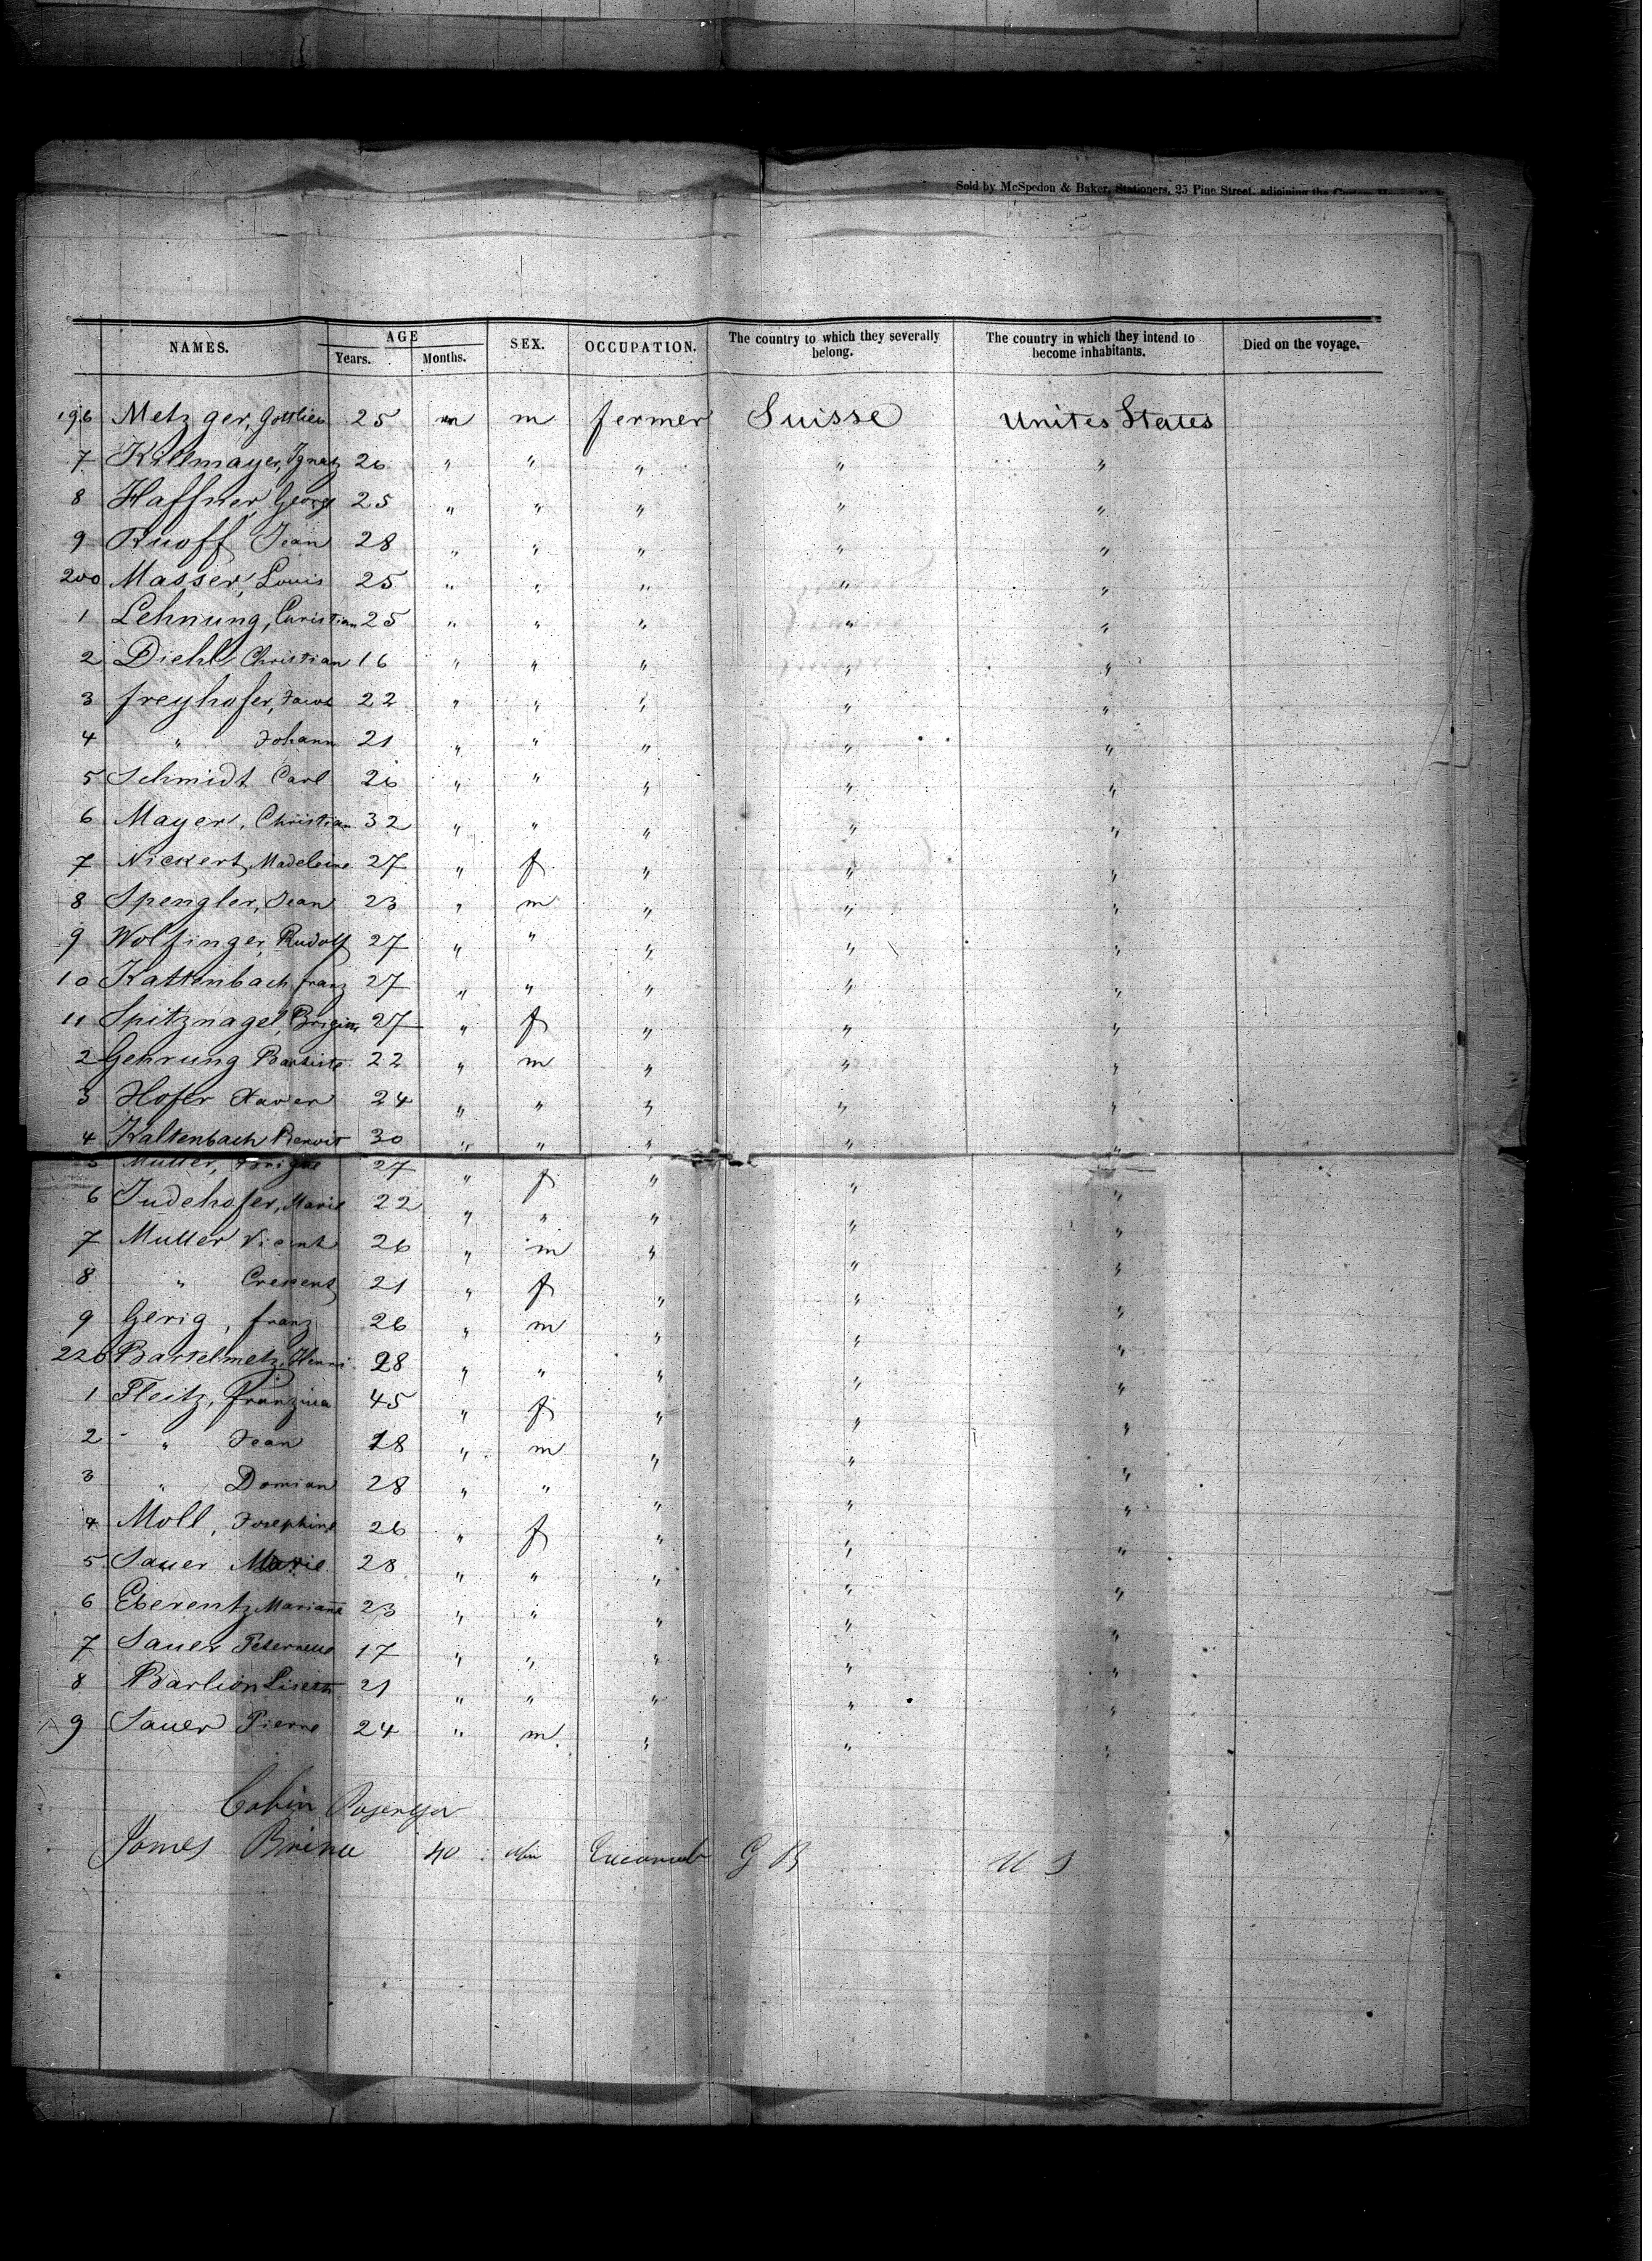 Sold by McSpedon & Baker, Stationers, 25 Pine Street, adjoining the
NAMES. AGE Years. Months. SEX. OCCUPATION. The country to which they severally belong. The country in which they intend to become inhabitants. Died on the voyage.
196 Metzger, Gottlieb 25 m m fermer Suisse Unites States
7 Killmayer, Ignatz 26 " " " " "
8 Haffner, George 25 " " " " "
9 Ruoff Jean 28 " " " " "
200 Masser, Louis 25 " " " " "
1 Lehnung, Christian 25 " " " " "
2 Diehl Christian 16 " " " " "
3 freyhofer, Jacob 22 " " " " "
4 " Johann 21 " " " " "
5 Schmidt Carl 26 " " " " "
6 Mayer, Christian 32 " " " " "
7 Nickert, Madeleine 27 " f " " "
8 Spengler, Jean 23 " m " " "
9 Wolfinger, Rudolf 27 " " " " "
10 Kattenbach, franz 27 " " " " "
11 Spitznagel, 27 " f " " "
2 Gehrung Batiste 22 " m " " "
3 Hofer Xaver 24 " " " " "
4 Kaltenbach 30 " " " " "
5 Muller, 27 " f " " "
6 Judehofer, Marie 22 " " " " "
7 Muller Vicent 26 " m " " "
8 " Crescent 21 " f " " "
9 Gerig, franz 26 " m " " "
220 Bartelmetz, Henri 28 " " " " "
1 Fleitz, franzisca 45 " f " " "
2 " Jean 18 " m " " "
3 " Domian 28 " " " " "
4 Moll, Josephine 26 " f " " "
5 Sauer Marie 28 " " " " "
6 Eberentz Marianne 23 " " " " "
7 Sauer 17 " " " " "
8 Barlion Liseth 21 " " " " "
9 Sauer Pierre 24 " m. " " "
Cabin Pasenger
James 40 G B U S